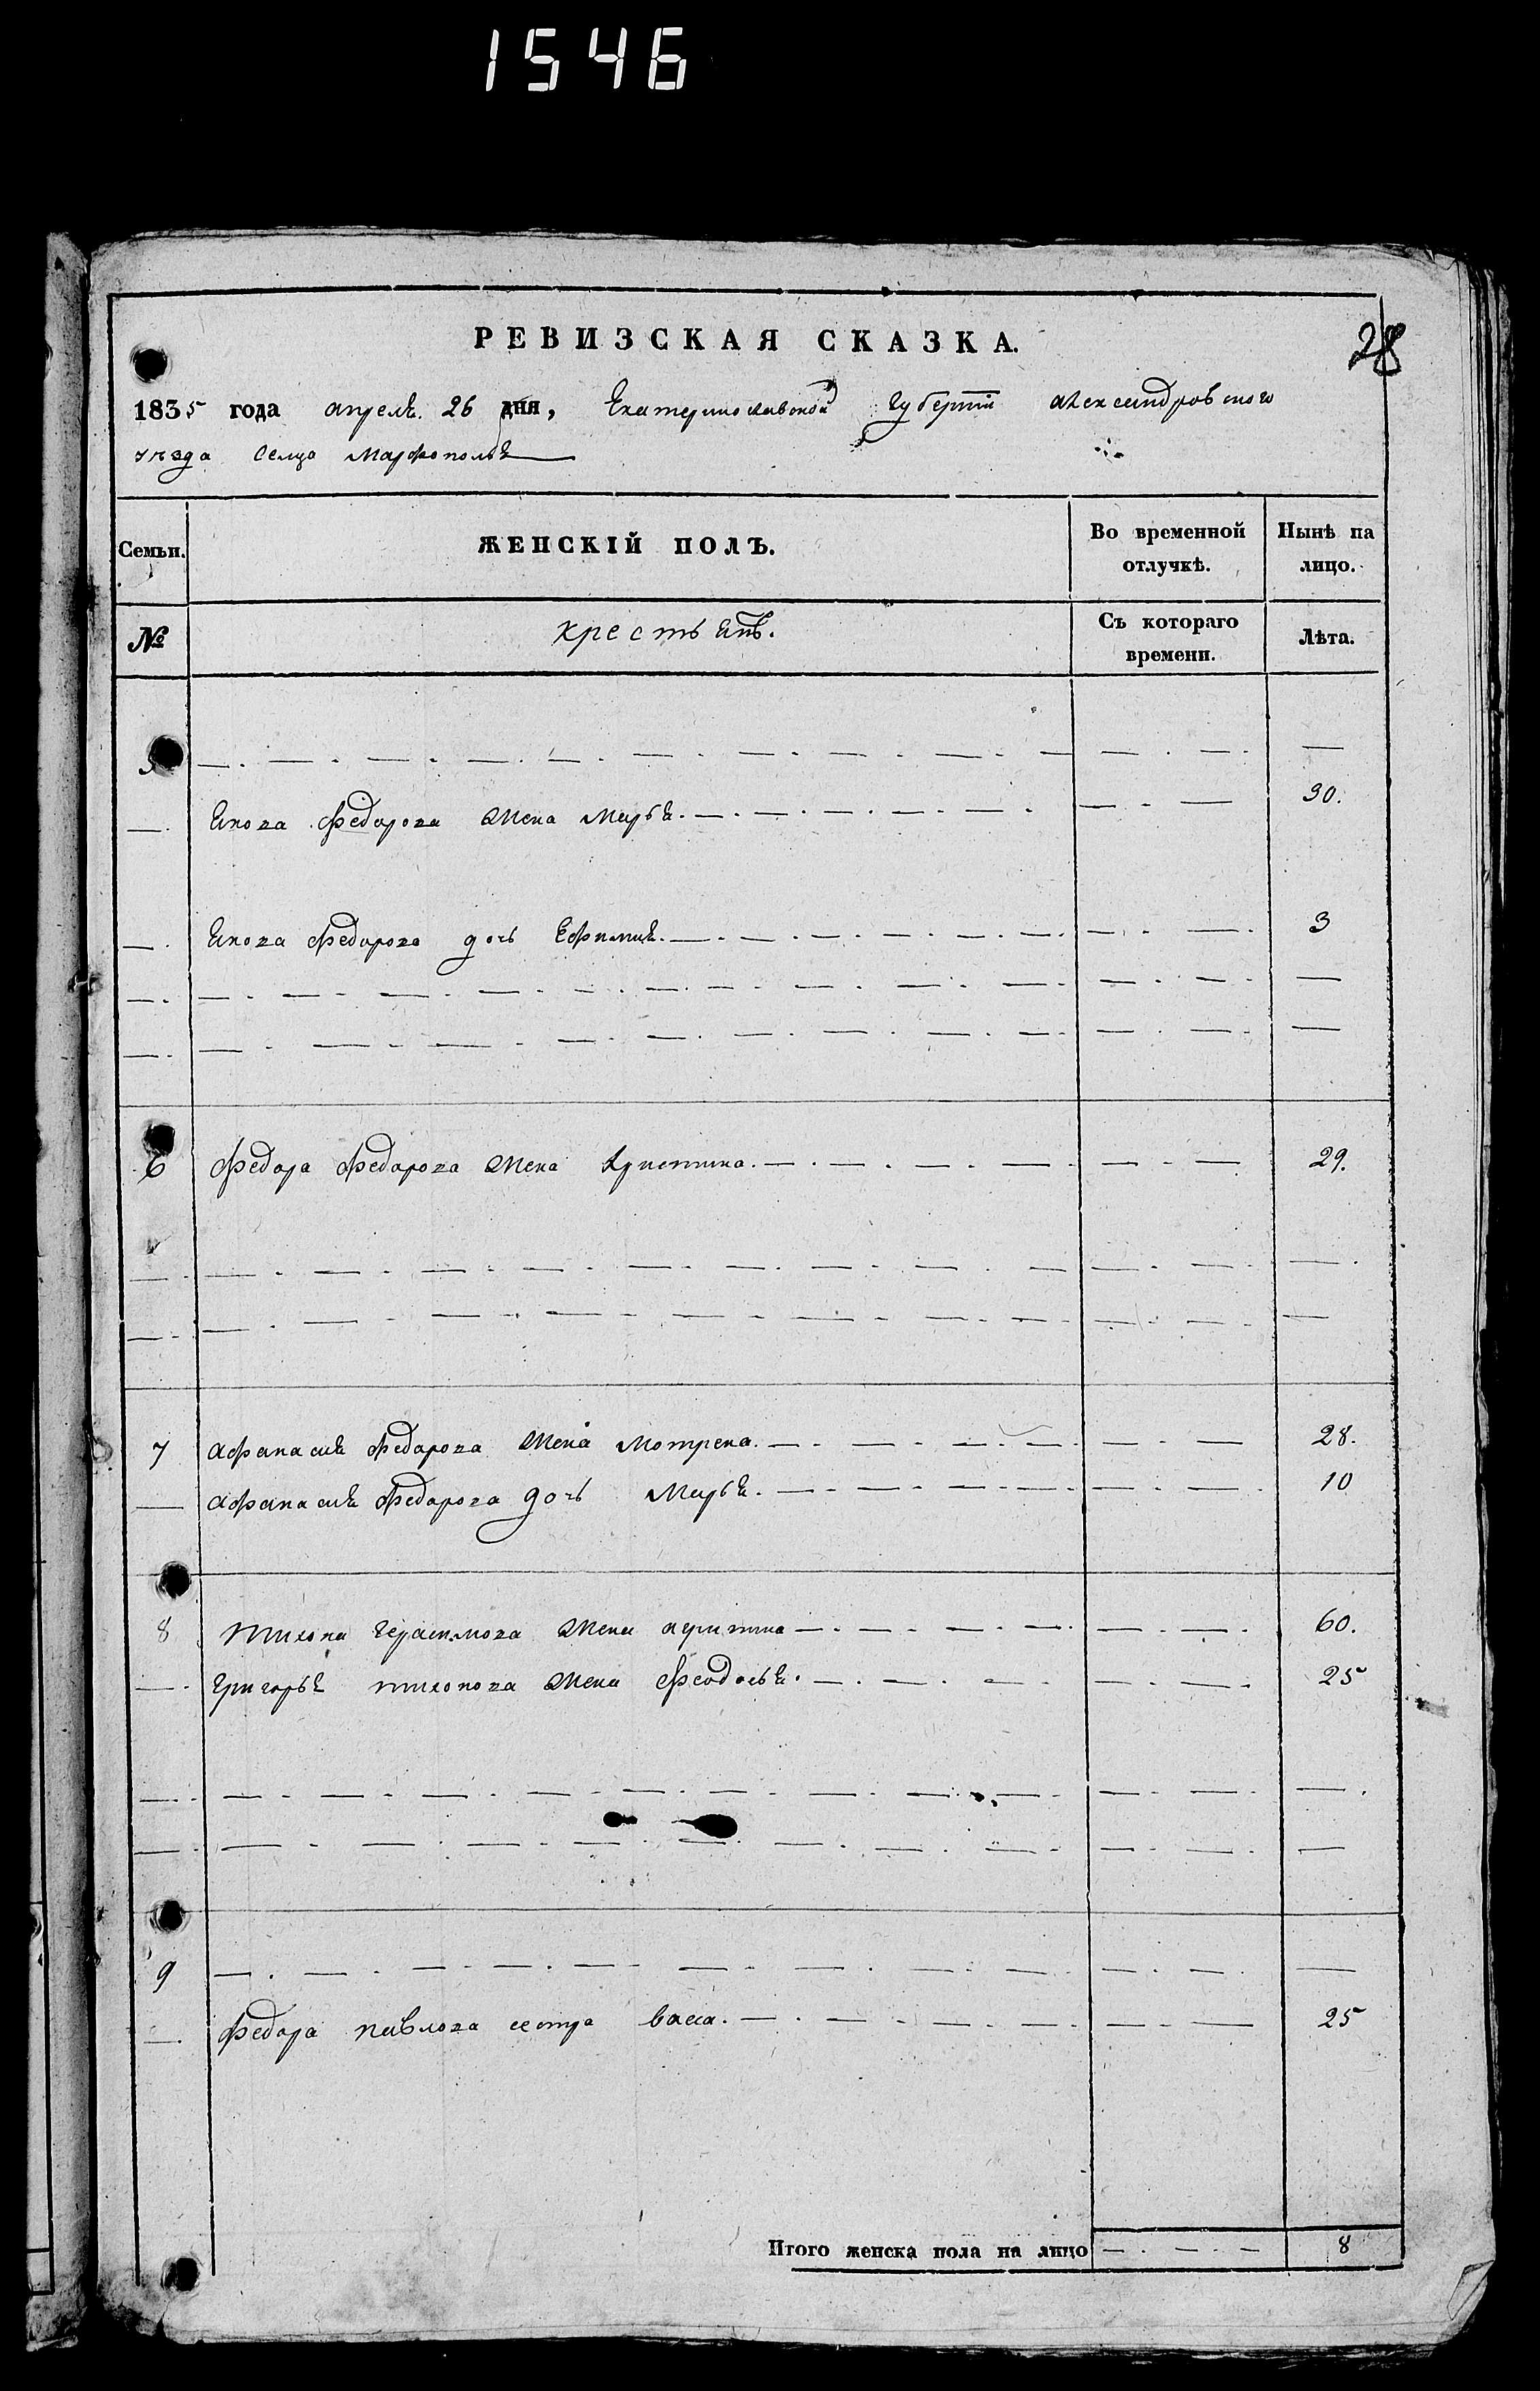 1546
РЕВИЗСКАЯ СКАЗКА.
28
1835 года апреля 26 дня, Екатеринославской губернии александровского
уезда селца Марфополя
Семьи. ЖЕНСКІЙ ПОЛЪ. Во временной отлучкѣ. Нынѣ на лицо.
№ крестьянъ. Съ котораго времени. Лѣта.
— . — . — . — — . —
— . Якова Федорова жена Марья. — . — 30.
— . Якова Федорова дочь Ефимия. — . — 3
— . — . — . — — . — —
— . — . — . — — . — —
6 Федора Федорова жена Христина. — . — 29.
— . — . — . — — . — —
— . — . — . — — . — —
7 афанасия Федорова жена мотрена. — . — 28.
— афанасия Федорова дочь Марья. — . — 10
8 тихона герасимова жена агрипина — . — 60.
— . григорья тихонова жена Феодосья. — . — 25
— . — . — . — — . — —
— . — . — . — — . — —
9 — . — . — . — — . — —
— . Федора павлова сестра васса. — . — 25
Итого женска пола на лицо — . — . — 8